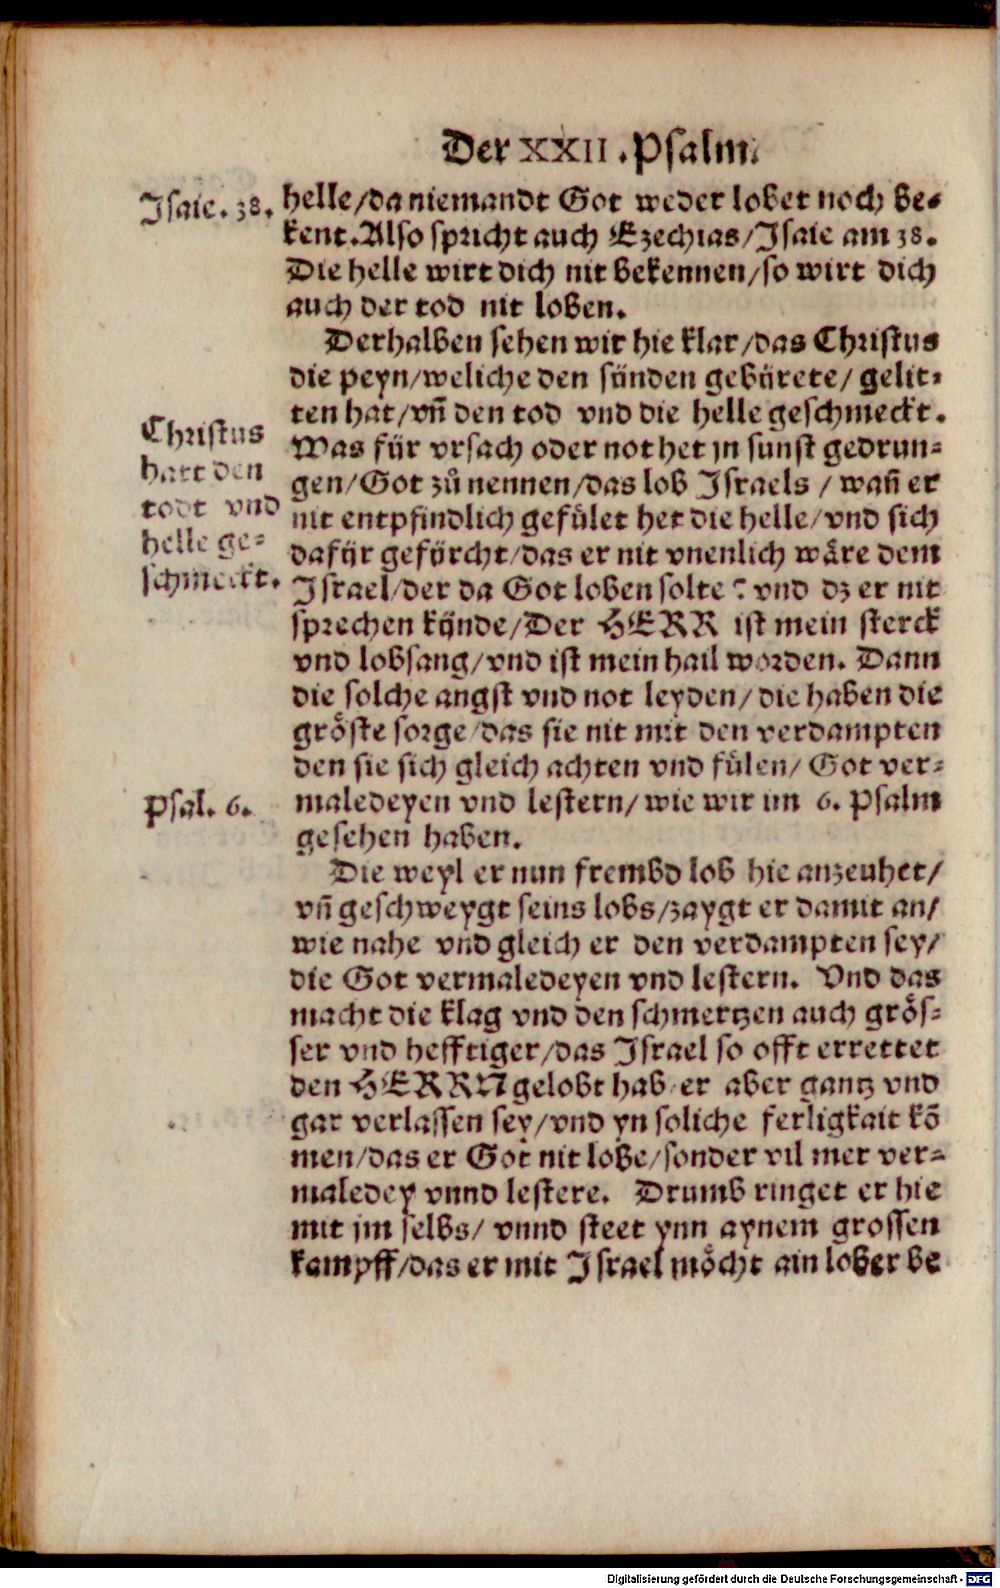 Der XXII. Psalm.
Isaie. 38.
helle/da niemandt Got weder lobet noch be-
kent. Also spricht auch Ezechias/Isaie am 38.
Die helle wirt dich nit bekennen/so wirt dich
auch der tod nit loben.
Derhalben sehen wir hie klar/das Christus
die peyn/weliche den sünden gebürete/ gelit-
ten hat/vñ den tod vnd die helle geschmeckt.
Christus
hatt den
todt vnd
helle ge-
schmeckt.
Was für vrsach oder not het jn sunst gedrun-
gen/Got zů nennen/das lob Israels / wañ er
nit entpfindlich gefůlet het die helle/vnd sich
dafür geförcht/das er nit vnenlich wäre dem
Israel/der da Got loben solte? vnd dz er nit
sprechen künde/Der HERR ist mein sterck
vnd lobsang/vnd ist mein hail worden. Dann
die solche angst vnd not leyden/die haben die
gröste sorge/das sie nit mit den verdampten
den sie sich gleich achten vnd fůlen/ Got ver-
Psal. 6.
maledeyen vnd lestern/ wie wir im 6. Psalm
gesehen haben.
Die weyl er nun frembd lob hie anzeuhet/
vñ geschweygt seins lobs/zaygt er damit an/
wie nahe vnd gleich er den verdampten sey/
die Got vermaledeyen vnd lestern. Vnd das
macht die klag vnd den schmertzen auch grös-
ser vnd hefftiger/das Israel so offt errettet
den HERRN gelobt hab/er aber gantz vnd
gar verlassen sey/vnd yn soliche ferligkait kõ
men/das er Got nit lobe/sonder vil mer ver-
maledey vnnd lestere. Drumb ringet er hie
mit jm selbs/ vnnd steet ynn aynem grossen
kampff/das er mit Israel möcht ain lober be
Digitalisierung gefördert durch die Deutsche Forschungsgemeinschaft - DFG